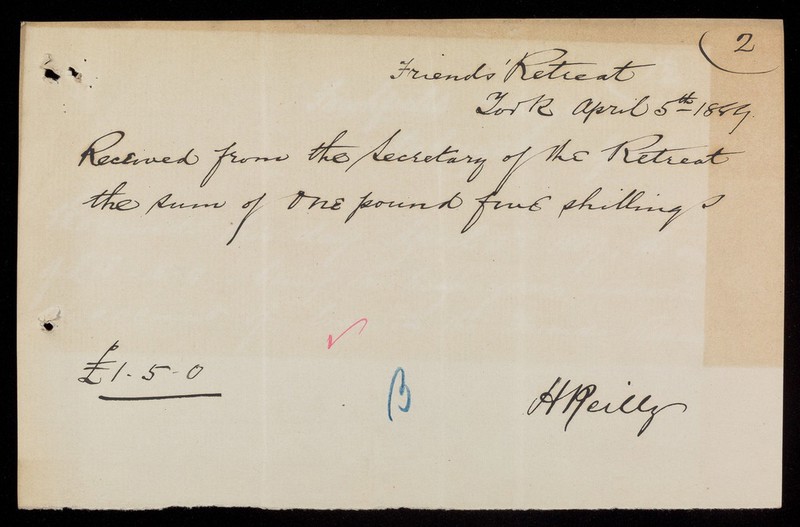 2
Friends' Retreat
York April 5th 1889
Received from the Secretary of the Retreat
the sum of One pound five shillings
£1-5-0
B
HReilly